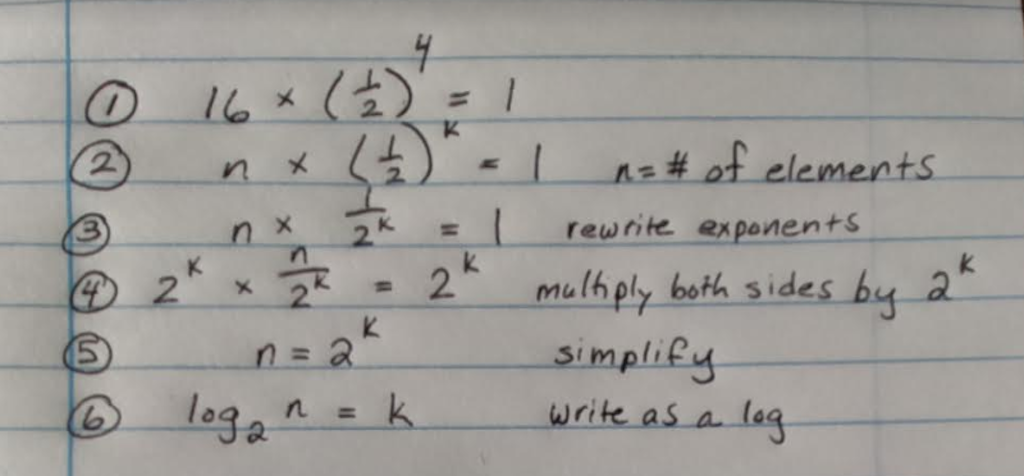 ① 16 × (1/2)⁴ = 1
② n × (1/2)ᵏ = 1 n = # of elements
③ n × 1/2ᵏ = 1 rewrite exponents
④ 2ᵏ × n/2ᵏ = 2ᵏ multiply both sides by 2ᵏ
⑤ n = 2ᵏ simplify
⑥ log₂ n = k write as a log